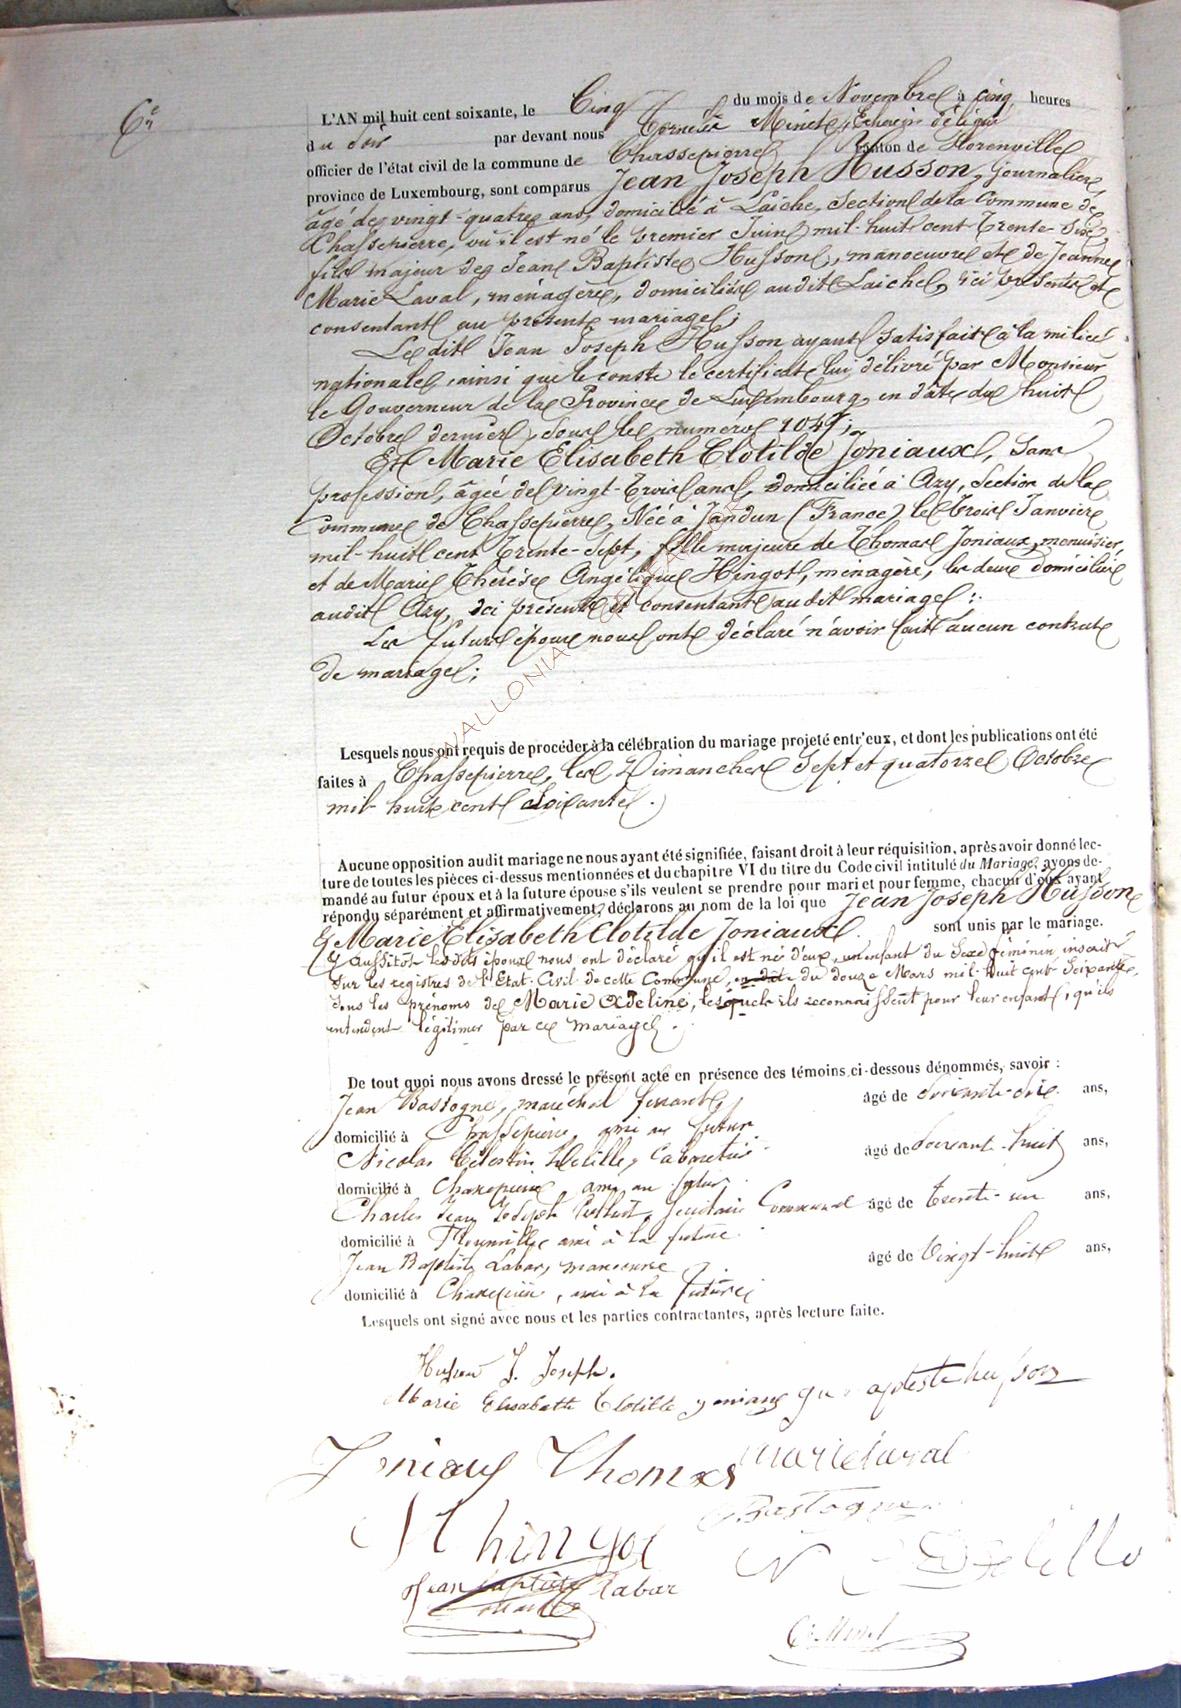 6e
L'AN mil huit cent soixante, le Cinq du mois de Novembre à cinq heures
du soir par devant nous Corneille Minet, Echevin délégué
officier de l'état civil de la commune de Chassepierre canton de Florenville
province de Luxembourg, sont comparus Jean Joseph Husson, Journalier,
âgé de vingt-quatre ans, domicilié à Laiche, Section de la Commune de
Chassepierre, où il est né le premier Juin mil-huit cent Trente-Six,
fils majeur de Jean Baptiste Husson, manoeuvre et de Jeanne
Marie Laval, ménagère, domiciliés audit Laiche, ici présents et
consentant au présent mariage;
Ledit Jean Joseph Husson ayant satisfait à la milice
nationale, ainsi que le conste le certificat lui délivré par Monsieur
le Gouverneur de la Province de Luxembourg, en date du huit
Octobre dernier, sous le numéro
Et Marie Elisabeth Clotilde Joniaux, Sans
profession, âgée de vingt-Trois ans, domiciliée à Azy, Section de la
Commune de Chassepierre, Née à Jandun (France) le Trois Janvier
mil-huit cent Trente-Sept, fille majeure de Thomas Joniaux, menuisier,
et de Marie Thérèse Angélique Hingot, ménagère, les deux domiciliés
audit Azy, ici présents et consentant audit mariage;
Les futurs époux nous ont déclaré n'avoir fait aucun contrat
de mariage;
WALLONIA
Lesquels nous ont requis de procéder à la célébration du mariage projeté entr'eux, et dont les publications ont été
faites à Chassepierre, les Dimanches Sept et quatorze Octobre
mil huit cent soixante.
Aucune opposition audit mariage ne nous ayant été signifiée, faisant droit à leur réquisition, après avoir donné lec-
ture de toutes les pièces ci-dessus mentionnées et du chapitre VI du titre du Code civil intitulé du Mariage, avons de-
mandé au futur époux et à la future épouse s'ils veulent se prendre pour mari et pour femme, chacun d'eux ayant
répondu séparément et affirmativement, déclarons au nom de la loi que Jean Joseph Husson
et Marie Elisabeth Clotilde Joniaux sont unis par le mariage.
Et aussitôt lesdits époux nous ont déclaré qu'il est né d'eux, un enfant du Sexe féminin inscrit
sur les registres de l'Etat-Civil de cette Commune, en date du douze Mars mil-huit cent Soixante,
sous les prénoms de Marie Adeline, lesquels ils reconnaissent pour leur enfant, qu'ils
entendent légitimer par ce mariage.
De tout quoi nous avons dressé le présent acte en présence des témoins ci-dessous dénommés, savoir :
Jean Bastogne, maréchal ferrant, âgé de ans,
domicilié à Chassepierre, ami au futur
Nicolas Célestin Delille, Cabaretier âgé de Soixante-huit ans,
domicilié à Chassepierre, ami au futur.
Charles Jean Joseph Secrétaire Communal âgé de Trente-un ans,
domicilié à Florenville ami à la future.
Jean Baptiste Labar, manoeuvre âgé de Vingt-huit ans,
domicilié à Chassepierre, ami à la future;
Lesquels ont signé avec nous et les parties contractantes, après lecture faite.
Husson J. Joseph.
Marie Elisabette Clotilde
Joniaux Thomas marie laval
Bastogne
M hingot
N Delille
Jean Baptiste Labar
C. Minet